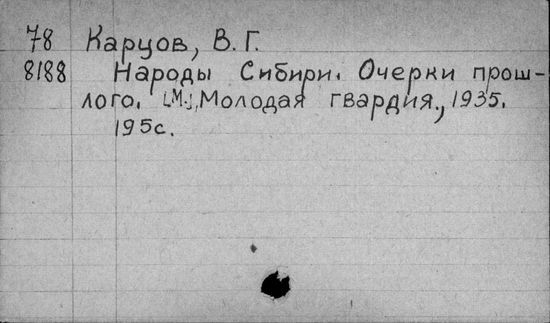 78 Карцов, В. Г.
8188 Народы Сибири. Очерки прош-
лого. [М.], Молодая гвардия., 1935.
195с.